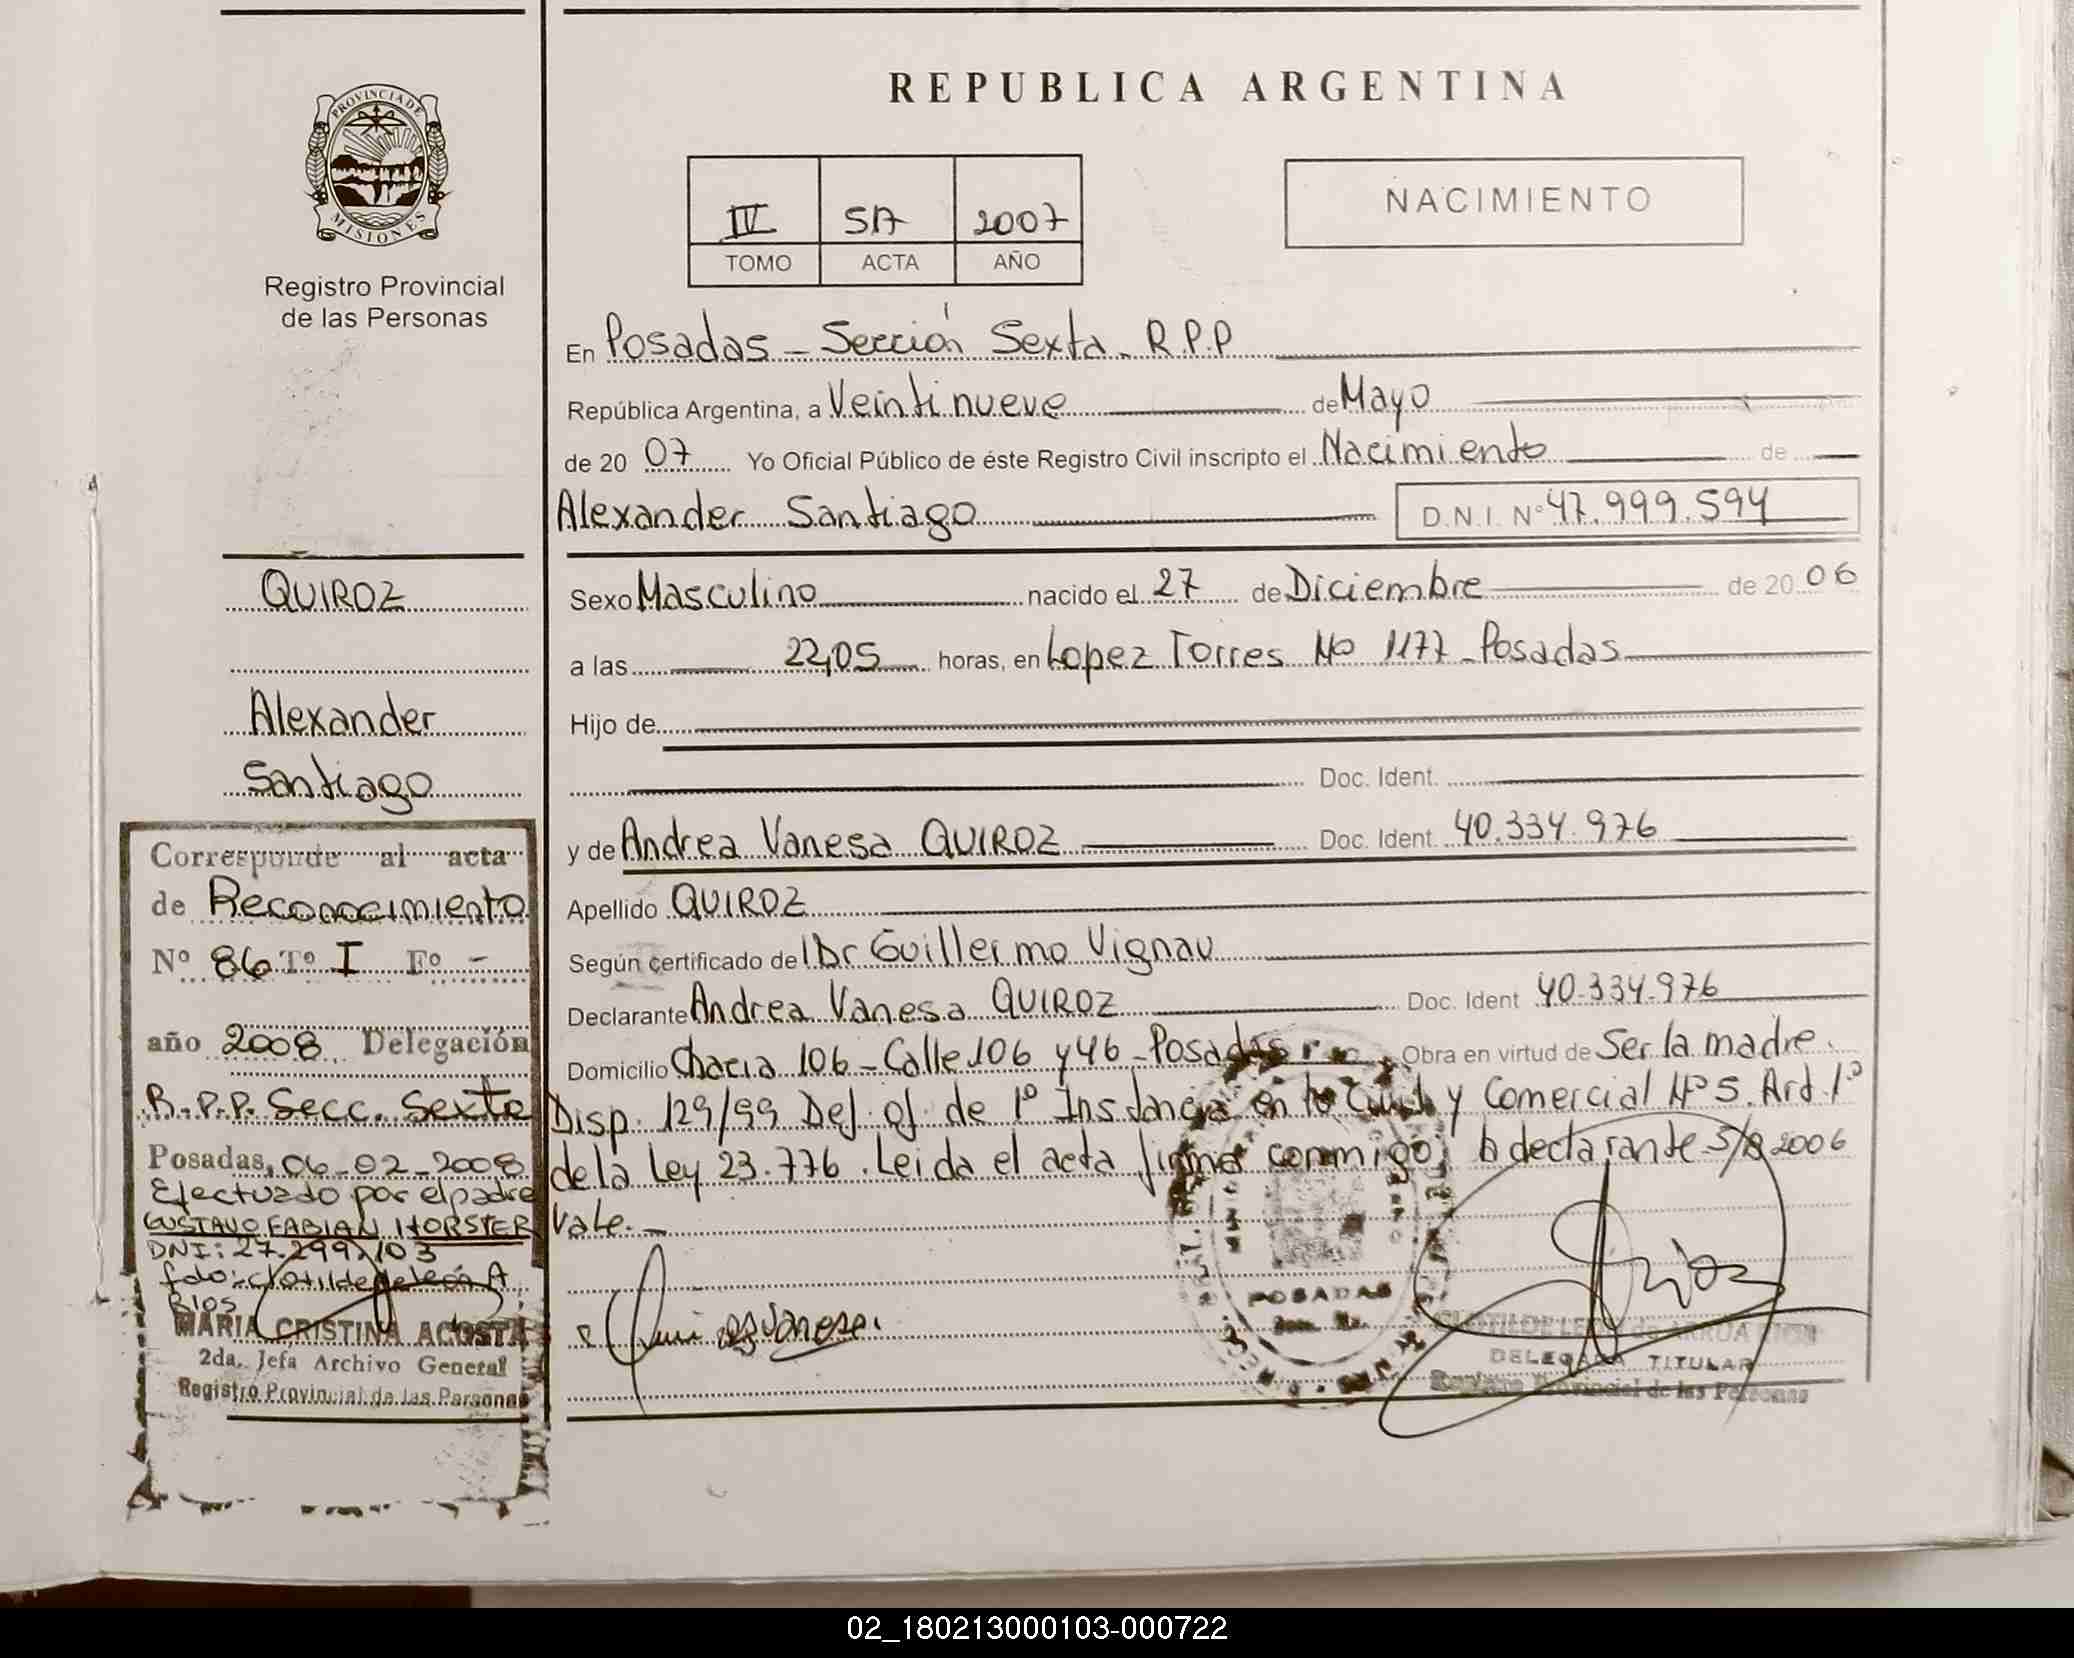 REPUBLICA ARGENTINA
PROVINCIA DE
MISIONES
Registro Provincial
de las Personas
IV 2007
TOMO ACTA AÑO
NACIMIENTO
En Posadas - Sección Sexta. R.P.P
República Argentina, a Veinti nueve de Mayo
de 20 07 Yo Oficial Público de éste Registro Civil inscripto el Nacimiento de
Alexander Santiago D.N.I. Nº 47.999.594
Sexo Masculino nacido el 27 de Diciembre de 20 06
a las 22,05 horas, en Lopez Torres No 1177 - Posadas
Hijo de
Doc. Ident.
y de Andrea Vanesa QUIROZ Doc. Ident. 40.334.976
Apellido QUIROZ
Según certificado de Dr Guillermo Vignau
Declarante Andrea Vanesa QUIROZ Doc. Ident 40.334.976
Domicilio Chacra 106 - Calle 106 y 46 - Posadas Obra en virtud de Ser la madre.
Disp. 129/99 Def. of. de 1º Instancia en lo Civil y Comercial Nº 5. Art. 1º
de la Ley 23.776. Leida el acta firma conmigo; la declarante 2006
Vale.
QUIROZ
Alexander
Santiago
Corresponde al acta
de Reconocimiento
Nº 86 Tº I Fº -
año 2008 Delegación
R.P.P. Secc. Sexta
Posadas, 06-02-2008
Efectuado por el padre
GUSTAVO FABIAN HORSTER
DNI: 27.299.103
fdo: Clotilde de León A
Rios
MARIA CRISTINA ACOSTA
2da. Jefa Archivo General
Registro Provincial de las Personas
Vanesa.
POSADAS
DELEGADA TITULAR
Registro Provincial de las Personas
02_180213000103-000722